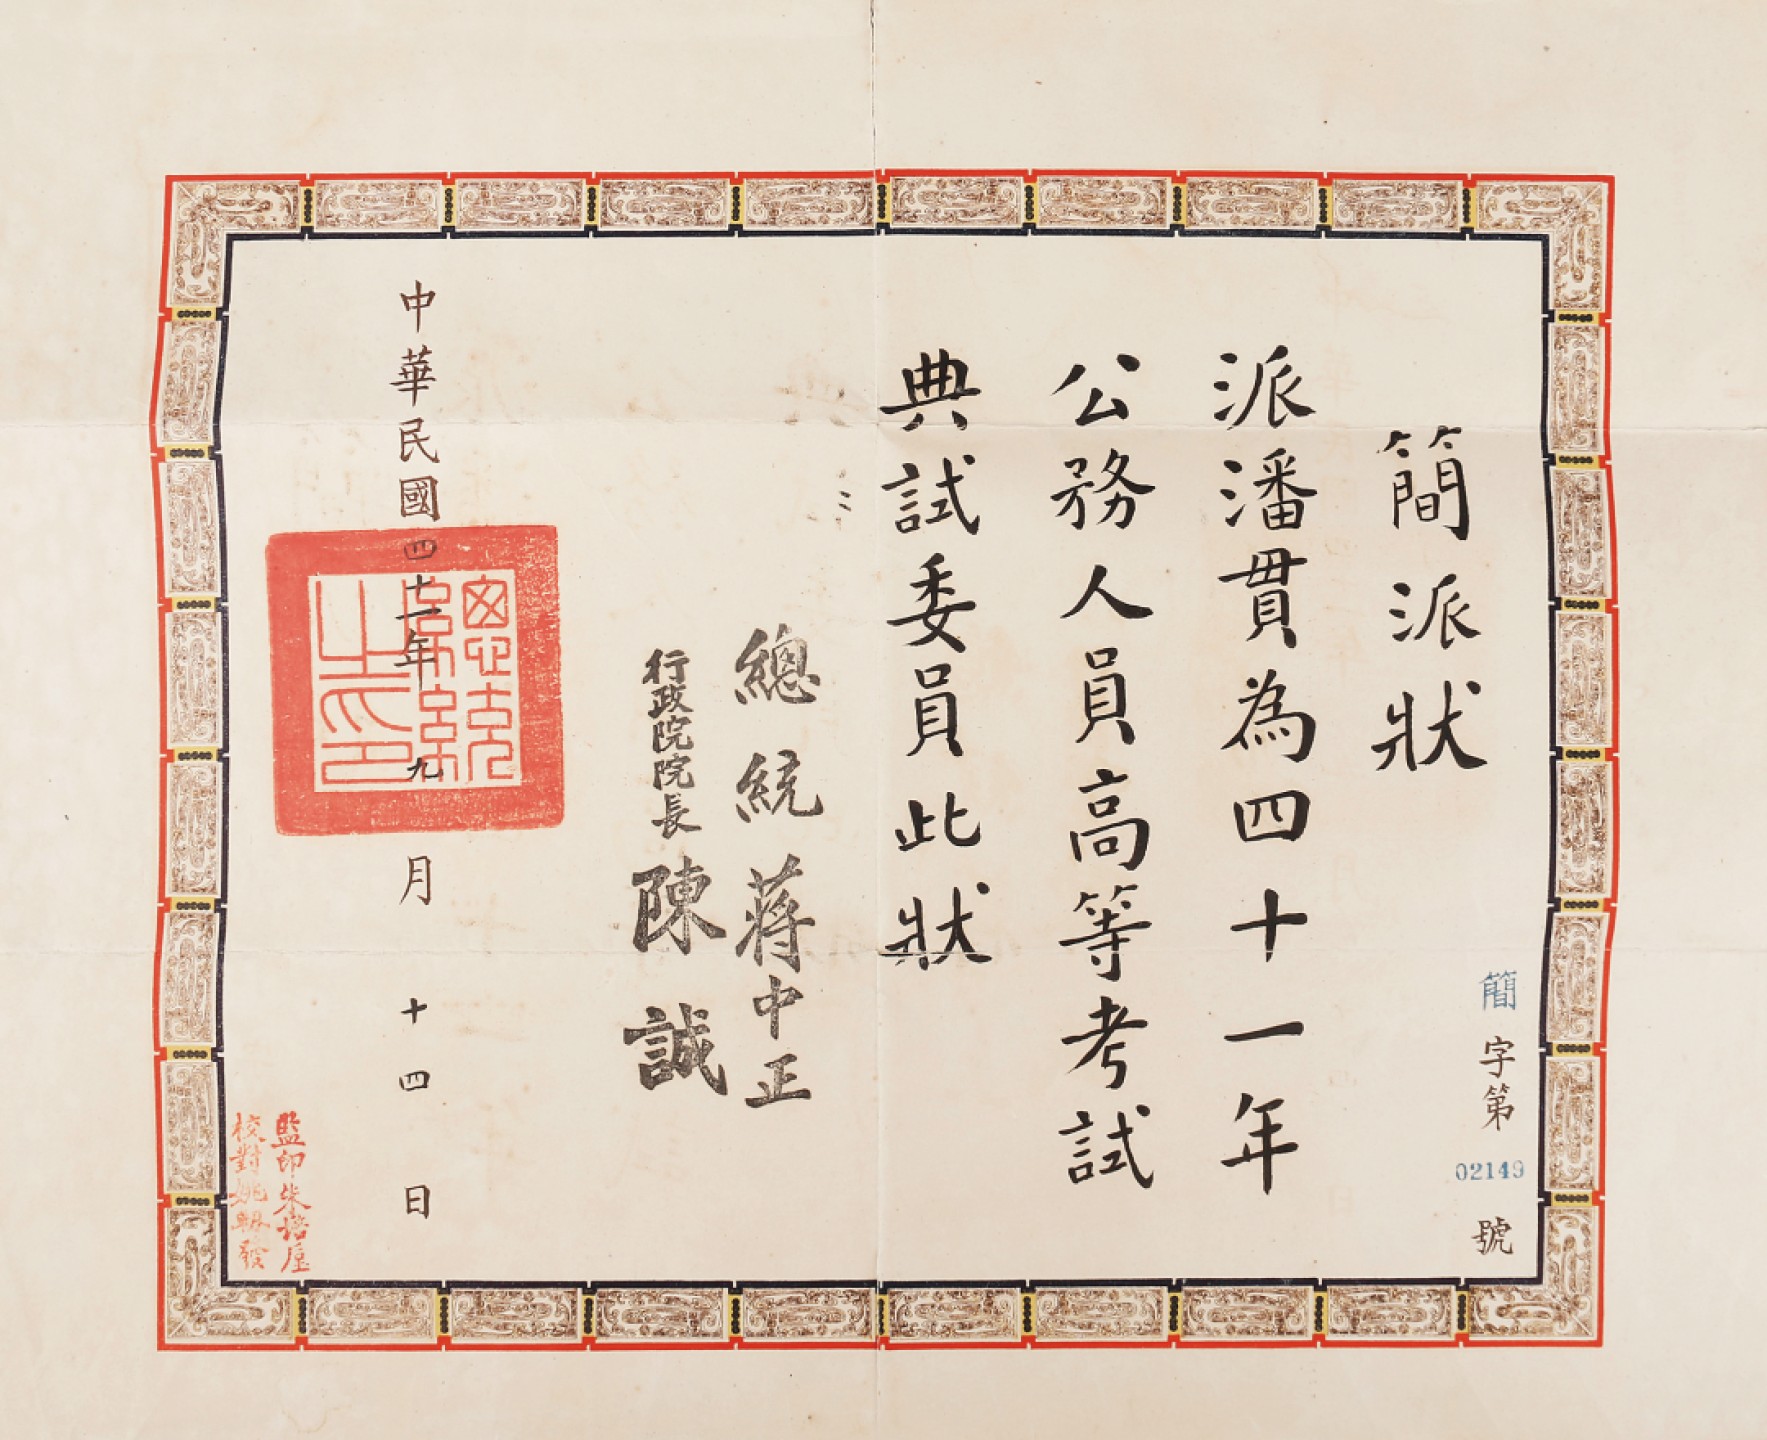 簡派狀
簡字第02149號
派潘貫為四十一年
公務人員高等考試
典試委員此狀
總統蔣中正
行政院院長陳誠
中華民國四十一年九月十四日
總統之印
監印朱培垕
校對姚